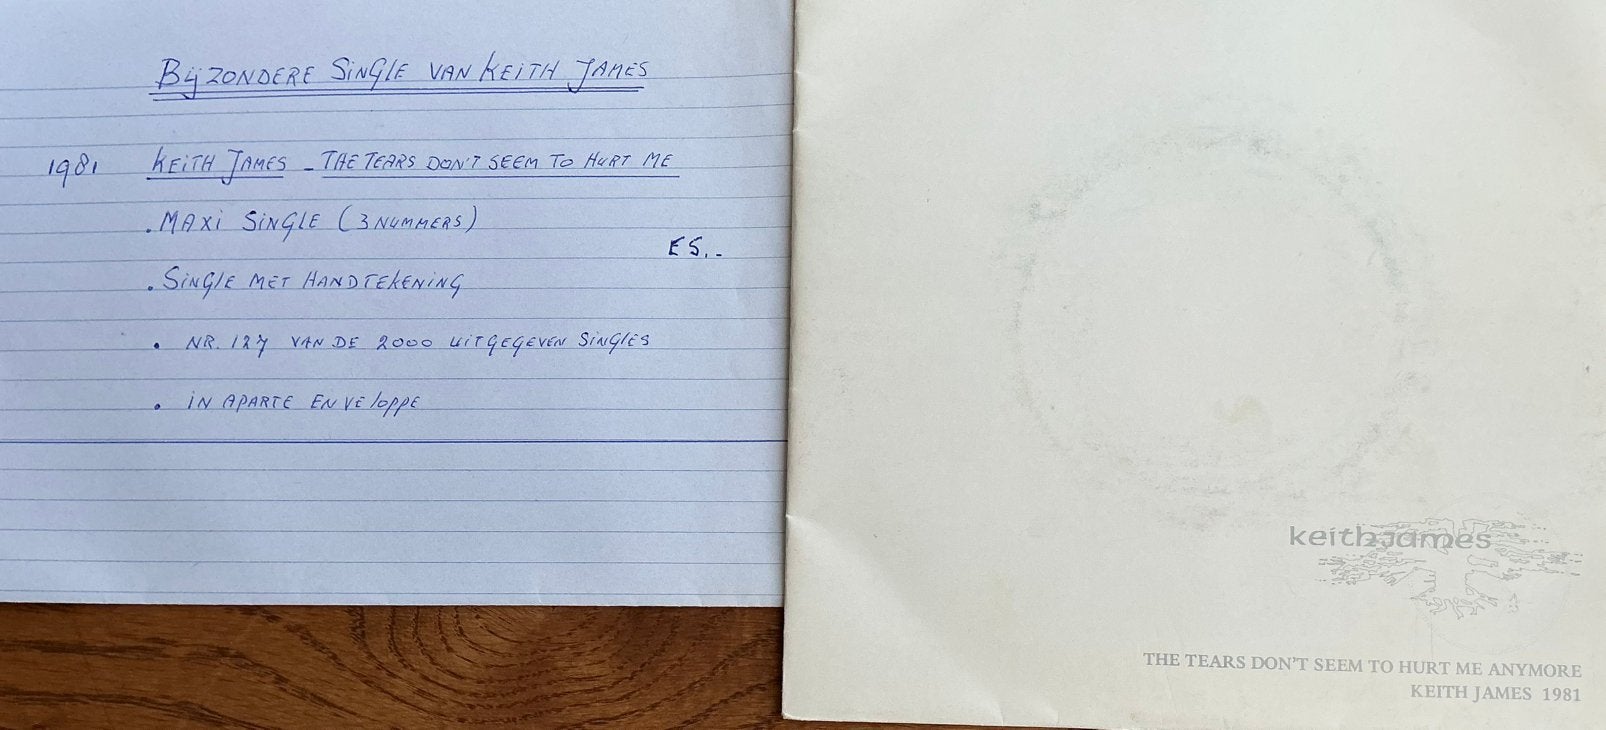 BIJZONDERE SINGLE VAN KEITH JAMES
1981 KEITH JAMES - THE TEARS DON'T SEEM TO HURT ME
. MAXI SINGLE (3 NUMMERS)
€ 5,-
. SINGLE MET HANDTEKENING
. NR. 127 VAN DE 2000 UITGEGEVEN SINGLES
. IN APARTE ENVELOPPE
keithjames
THE TEARS DON'T SEEM TO HURT ME ANYMORE
KEITH JAMES 1981